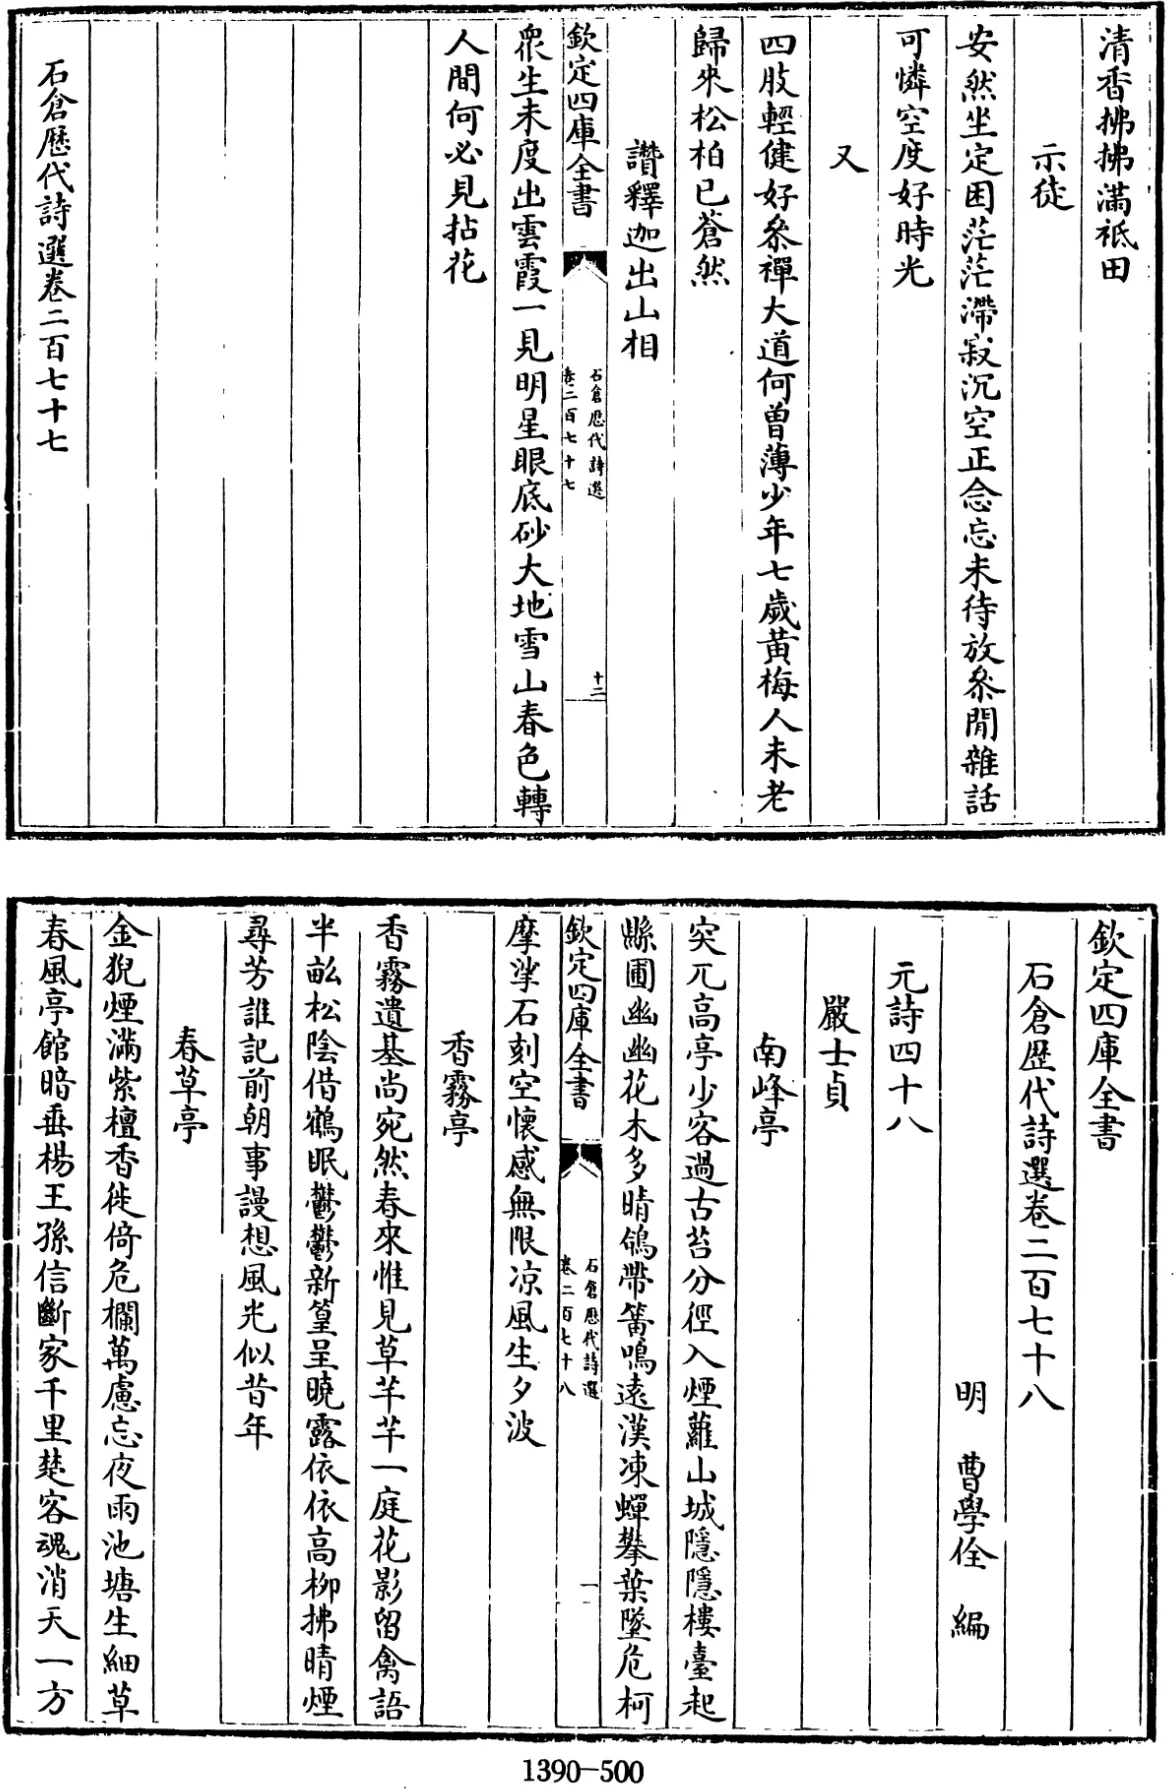 清香拂拂滿祗田
示徒
安然坐定困茫茫滯寂沉空正念忘未待放叅閒雜話
可憐空度好時光
又
四肢輕健好叅禪大道何曾薄少年七歲黃梅人未老
歸來松柏已蒼然
讚釋迦出山相
欽定四庫全書
石倉歷代詩選
卷二百七十七
十二
衆生未度出雲霞一見明星眼底砂大地雪山春色轉
人間何必見拈花
石倉歷代詩選卷二百七十七
欽定四庫全書
石倉歷代詩選卷二百七十八
明 曹學佺 編
元詩四十八
嚴士貞
南峰亭
突兀高亭少客過古苔分徑入煙蘿山城隱隱樓臺起
縣圃幽幽花木多晴鴿帶籌鳴遠漢凍蟬攀葉墜危柯
欽定四庫全書
石倉歷代詩選
卷二百七十八
一
摩挲石刻空懷感無限凉風生夕波
香霧亭
香霧遺基尚宛然春來惟見草芊芊一庭花影留禽語
半畝松陰借鶴眠鬱鬱新篁呈曉露依依高柳拂晴煙
尋芳誰記前朝事謾想風光似昔年
春草亭
金猊煙滿紫檀香徙倚危欄萬慮忘夜雨池塘生細草
春風亭館暗垂楊王孫信斷家千里楚客魂消天一方
1390-500